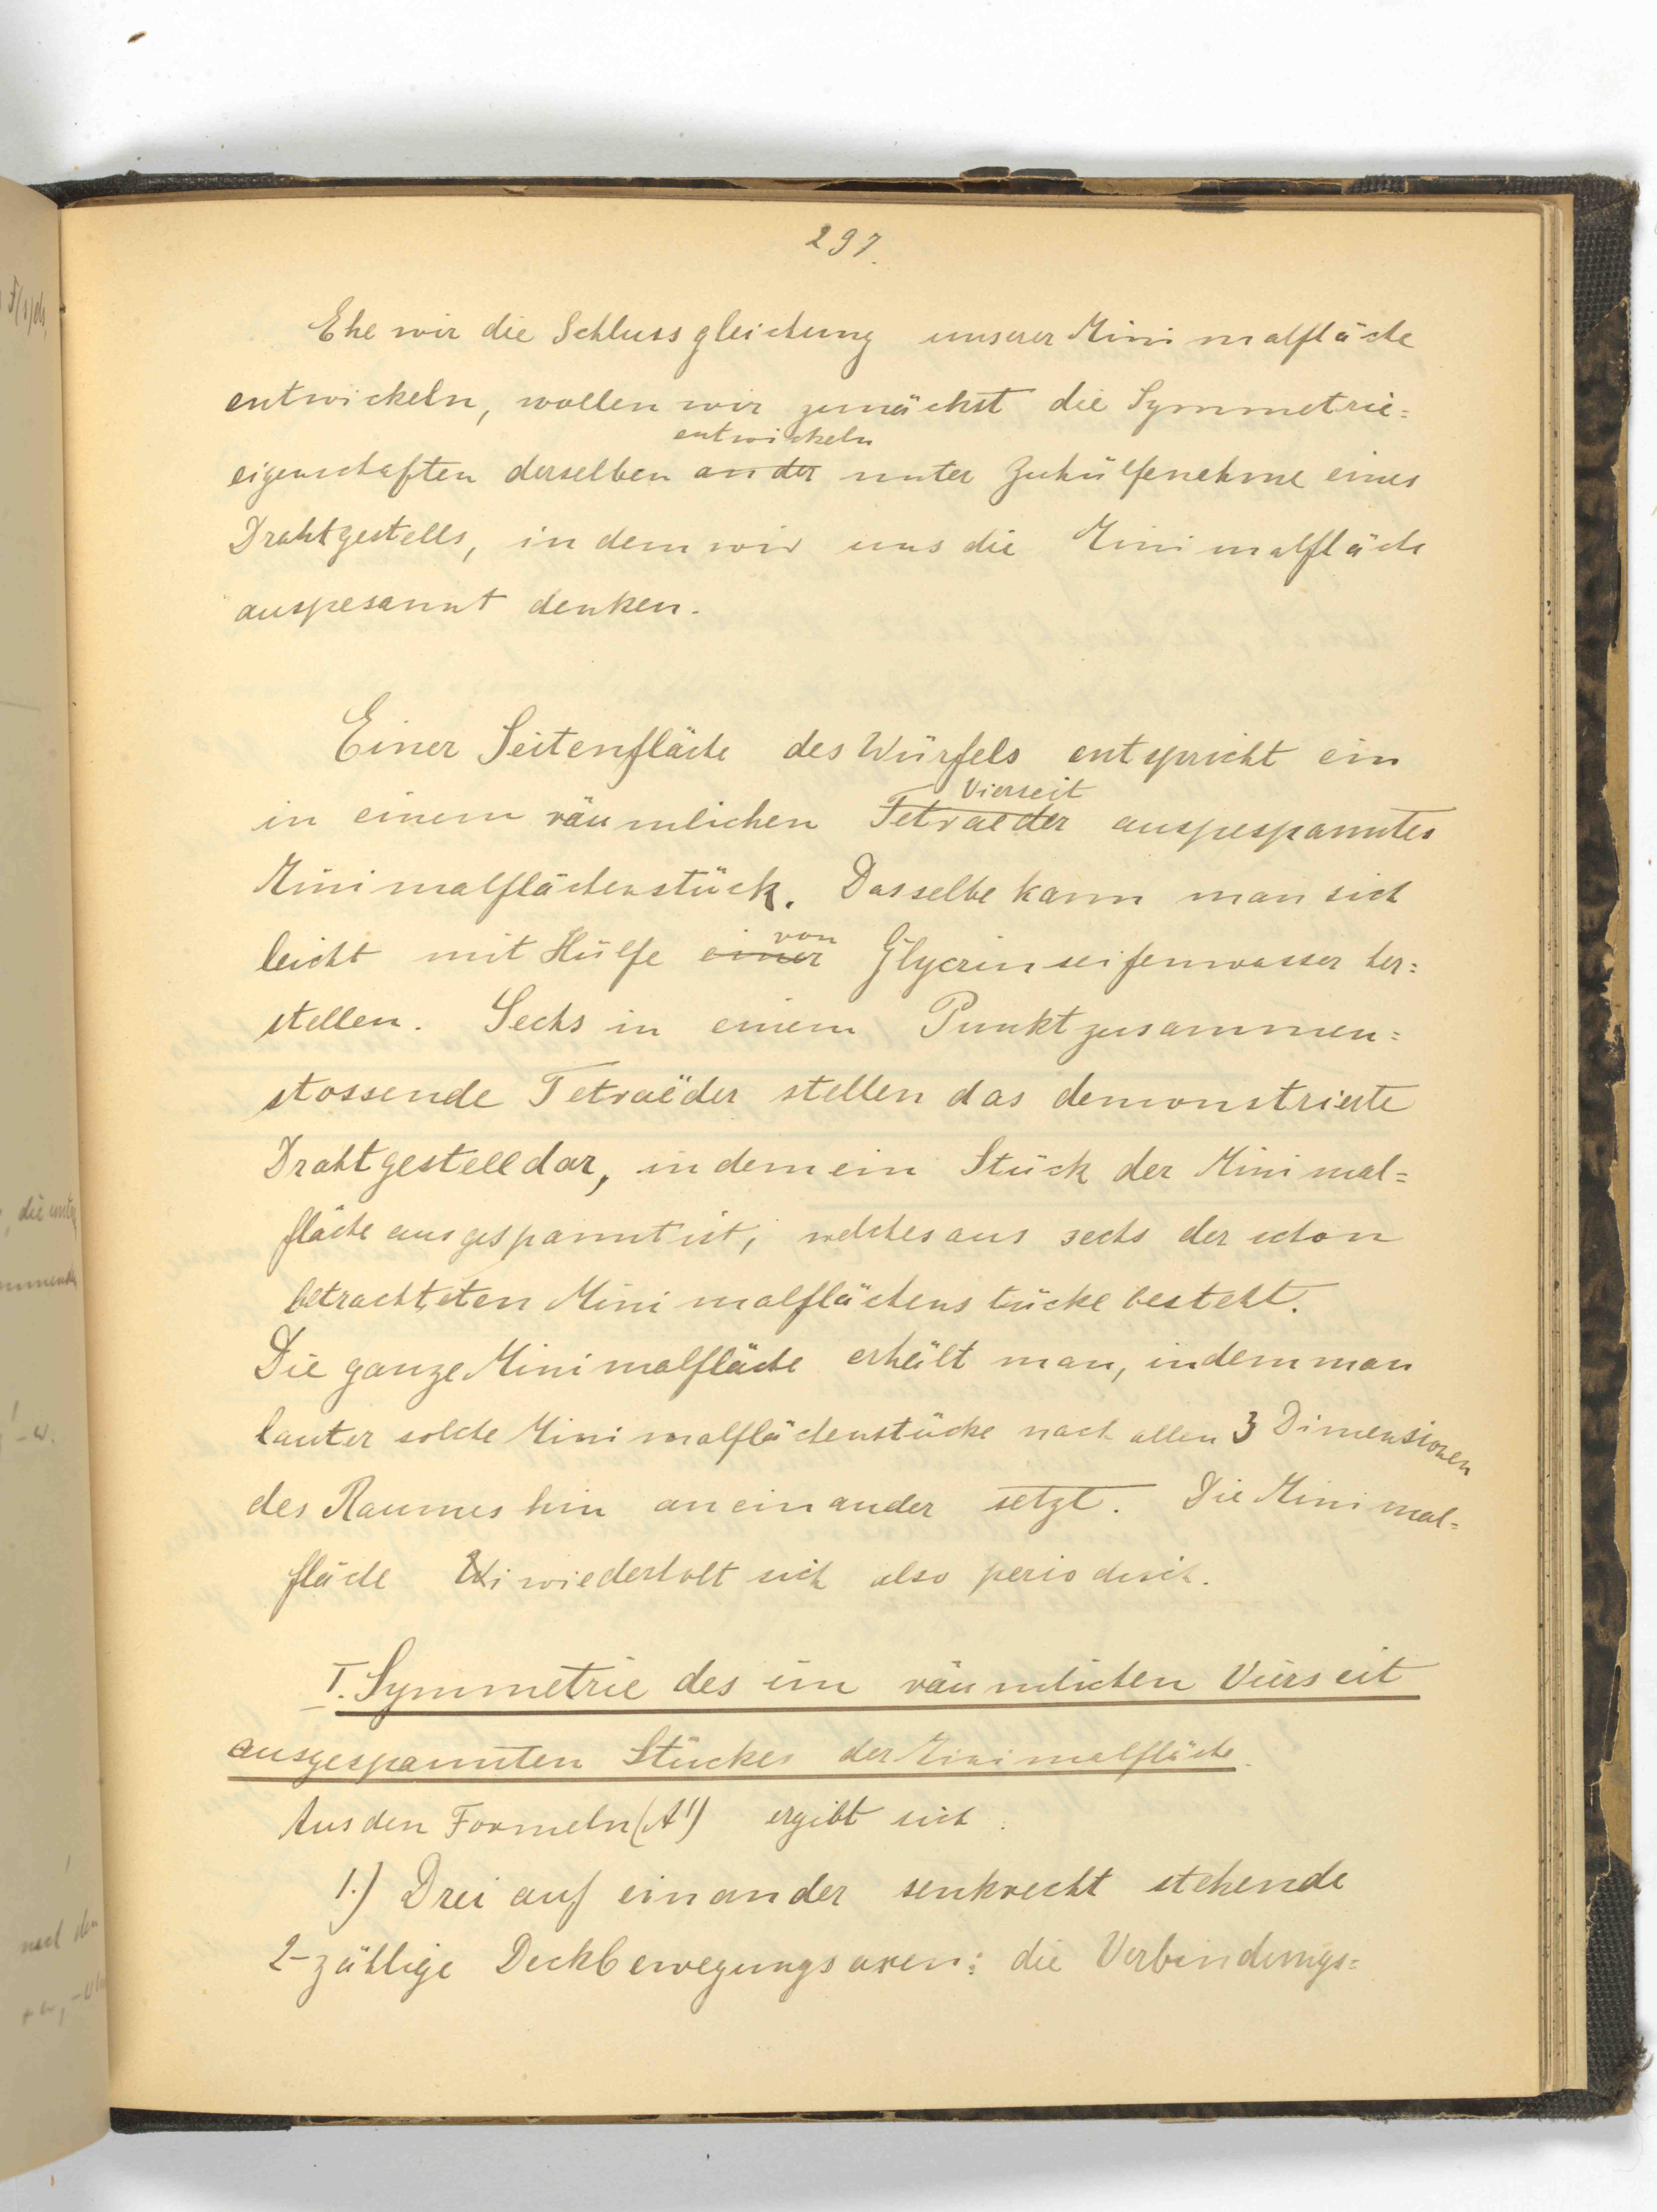 297.
Ehe wir die Schlussgleichung unserer Minimalfläche
entwickeln, wollen wir zunächst die Symmetrie=
entwickeln
eigenschaften derselben an der unter Zuhülfenehme eines
Drahtgestells, in dem wir uns die Minimalfläche
auspesannt denken.
Einer Seitenfläche des Würfels entspricht ein
Vierseit
in einem räumlichen Tetraeder auspespanntes
Minimalflächenstück. Dasselbe kann man sich
von
leicht mit Hülfe einer Glycerinseifenwasser her=
stellen. Sechs in einem Punkt zusammen=
stossende Tetraëder stellen das demonstrierte
Drahtgestell dar, in dem ein Stück der Minimal=
fläche ausgespannt ist, welches aus sechs der schon
betrachteten Minimalflächenstücke besteht.
Die ganze Minimalfläche erhält man, indem man
lauter solche Minimalflächenstücke nach allen 3 Dimensionen
des Raumes hin aneinander setzt. Die Minimal=
fläche wiederholt sich also periodisch.
I. Symmetrie des im räumlichen Vierseit
ausgespannten Stückes der Minimalfläche.
Aus den Formeln (A') ergibt sich:
1.) Drei auf einander senkrecht stehende
2-zählige Deckbewegungsaxen: die Verbindungs=